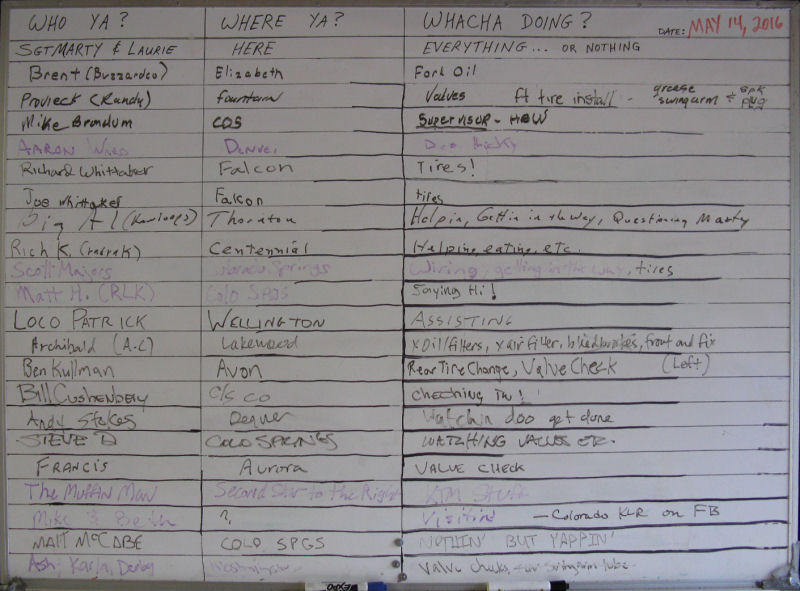 WHO YA? WHERE YA? WHACHA DOING? DATE: MAY 14, 2016
SGTMARTY & LAURIE HERE EVERYTHING... OR NOTHING
Brent (Buzzardco) Elizabeth Fork Oil
Provieck (Randy) fountain Valves ft tire install - grease swingarm + spk plug
Mike Brondum COS Supervisor - HBW
AARON Denver
Richard Whittaker Falcon Tires!
Joe Whittaker Falcon tires
Big Al (Kamloops) Thornton Helpin, Gettin in the way, Questioning Marty
Rich K. Centennial Helping, eating, etc.
Scott Majors Colorado Springs Wiring, getting in the way, tires
Matt H. (RLK) Colo Spgs Saying Hi!
LOCO PATRICK WELLINGTON ASSISTING
Archibald (A.C) Lakewood x oil filters, x air filter, bleed brakes, front and fix
Ben Kullman Avon Rear Tire Change, Valve Check (Left)
Bill Cushenbery C/S CO checking in!
Andy Stokes Denver Watchin doo get done
STEVE D COLO SPRINGS WATCHING VALVES ETC.
FRANCIS Aurora VALVE CHECK
The Muffin Man Second Star to the Right KTM Stuff
Mike & Beth ? Visiting - Colorado KLR on FB
MATT McCABE COLO. SPGS NOTHIN' BUT YAPPIN'
Ash, Karla, Derby Westminster Valve checks, swingarm lube
EXPO